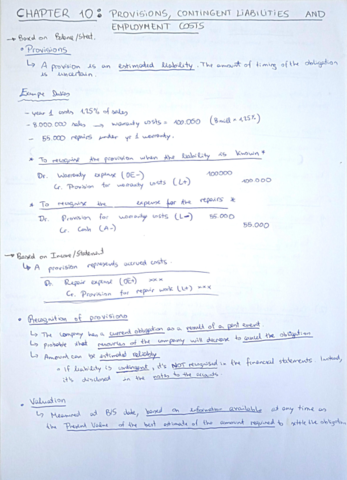 CHAPTER 10: PROVISIONS, CONTINGENT LIABILITIES AND
EMPLOYMENT COSTS
→ Based on Balance/Stat.
• Provisions
↳ A provision is an estimated liability. The amount of timing of the obligation
is uncertain.
Example
- year 1 ends 1.25% of sales
- 8 000 000 sales → warranty costs = 100.000 (8 mill × 1.25%)
- 55.000 repairs under yr 1 warranty.
* To recognise the provision when the liability is known *
Dr. Warranty expense (OE-) 100000
Cr. Provision for warranty costs (L+) 100.000
* To recognise the expense for the repairs *
Dr. Provision for warranty costs (L-) 55.000
Cr. Cash (A-) 55.000
→ Based on Income/Statement
↳ A provision represents accrued costs.
Dr. Repair expense (OE+) xxx
Cr. Provision for repair work (L+) xxx
• Recognition of provisions
↳ The company has a current obligation as a result of a past event
↳ probable that resources of the company will decrease to the obligation
↳ Amount can be estimated reliably
• If liability is contingent, it's NOT recognised in the financial statements instead,
it's disclosed in the notes to the accounts
• Valuation
↳ Measured at B/S date, based on information available at any time as
the Present Value of the best estimate of the amount required to settle the obligation.